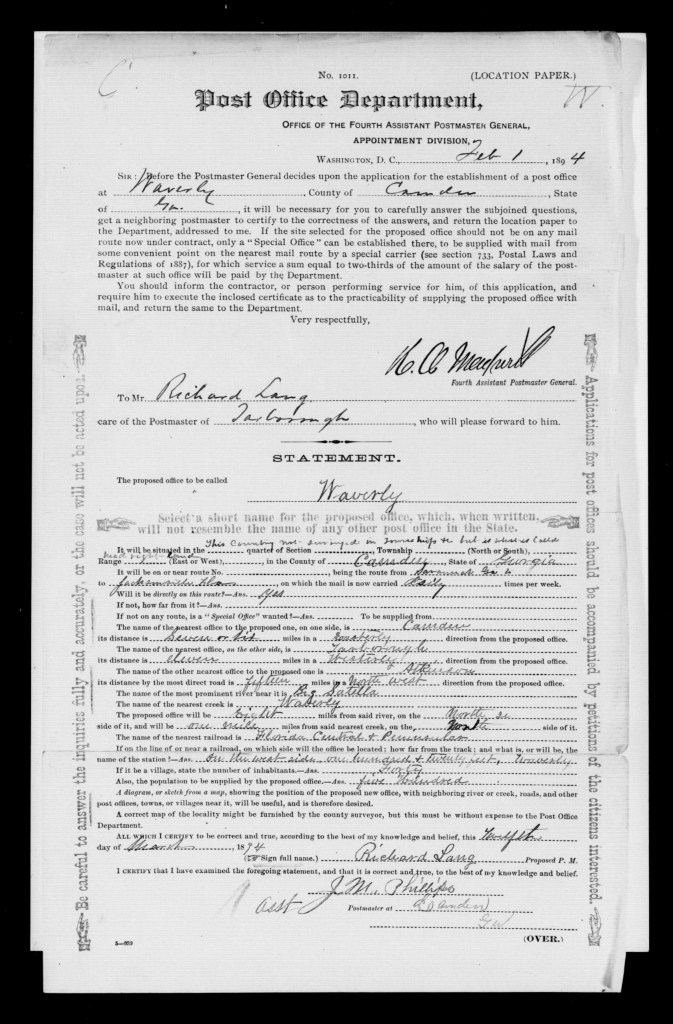 C.
No. 1011.
(LOCATION PAPER.)
W.
Post Office Department,
OFFICE OF THE FOURTH ASSISTANT POSTMASTER GENERAL,
APPOINTMENT DIVISION,
WASHINGTON, D. C., Feb 1, 1894
SIR: Before the Postmaster General decides upon the application for the establishment of a post office
at Waverly, County of Camden, State
of Ga., it will be necessary for you to carefully answer the subjoined questions,
get a neighboring postmaster to certify to the correctness of the answers, and return the location paper to
the Department, addressed to me. If the site selected for the proposed office should not be on any mail
route now under contract, only a "Special Office" can be established there, to be supplied with mail from
some convenient point on the nearest mail route by a special carrier (see section 733, Postal Laws and
Regulations of 1887), for which service a sum equal to two-thirds of the amount of the salary of the post-
master at such office will be paid by the Department.
You should inform the contractor, or person performing service for him, of this application, and
require him to execute the inclosed certificate as to the practicability of supplying the proposed office with
mail, and return the same to the Department.
Very respectfully,
Fourth Assistant Postmaster General.
To Mr. Richard Lang
care of the Postmaster of Tarborough, who will please forward to him.
STATEMENT.
The proposed office to be called Waverly
Select a short name for the proposed office, which, when written,
will not resemble the name of any other post office in the State.
This County not surveyed in townships &c but is what is called
head right land
It will be situated in the quarter of Section, Township (North or South),
Range (East or West), in the County of Camden, State of Georgia
It will be on or near route No., being the route from Savannah Ga
to Jacksonville Fla, on which the mail is now carried Daily times per week.
Will it be directly on this route?—Ans. Yes
If not, how far from it?—Ans.
If not on any route, is a "Special Office" wanted?—Ans. To be supplied from
The name of the nearest office to the proposed one, on one side, is Camden
its distance is Seven or Six miles in a direction from the proposed office.
The name of the nearest office, on the other side, is Tarborough
its distance is eleven miles in a Westerly direction from the proposed office.
The name of the other nearest office to the proposed one is Atkinson
its distance by the most direct road is fifteen miles in a North west direction from the proposed office.
The name of the most prominent river near it is Big Satilla
The name of the nearest creek is Waverly
The proposed office will be Eight miles from said river, on the North
side of it, and will be one mile miles from said nearest creek, on the North side of it.
The name of the nearest railroad is Florida Central & Peninsular
If on the line of or near a railroad, on which side will the office be located; how far from the track; and what is, or will be, the
name of the station?—Ans. On the west side, one hundred & twenty feet, Waverly
If it be a village, state the number of inhabitants.—Ans. Forty
Also, the population to be supplied by the proposed office.—Ans. five Hundred
A diagram, or sketch from a map, showing the position of the proposed new office, with neighboring river or creek, roads, and other
post offices, towns, or villages near it, will be useful, and is therefore desired.
A correct map of the locality might be furnished by the county surveyor, but this must be without expense to the Post Office
Department.
ALL WHICH I CERTIFY to be correct and true, according to the best of my knowledge and belief, this twelfth
day of March, 1894
(Sign full name.) Richard Lang Proposed P. M.
I CERTIFY that I have examined the foregoing statement, and that it is correct and true, to the best of my knowledge and belief.
J. M. Phillips
Asst Postmaster at Camden
Ga
(OVER.)
Be careful to answer the inquiries fully and accurately, or the case will not be acted upon.
Applications for post offices should be accompanied by petitions of the citizens interested.